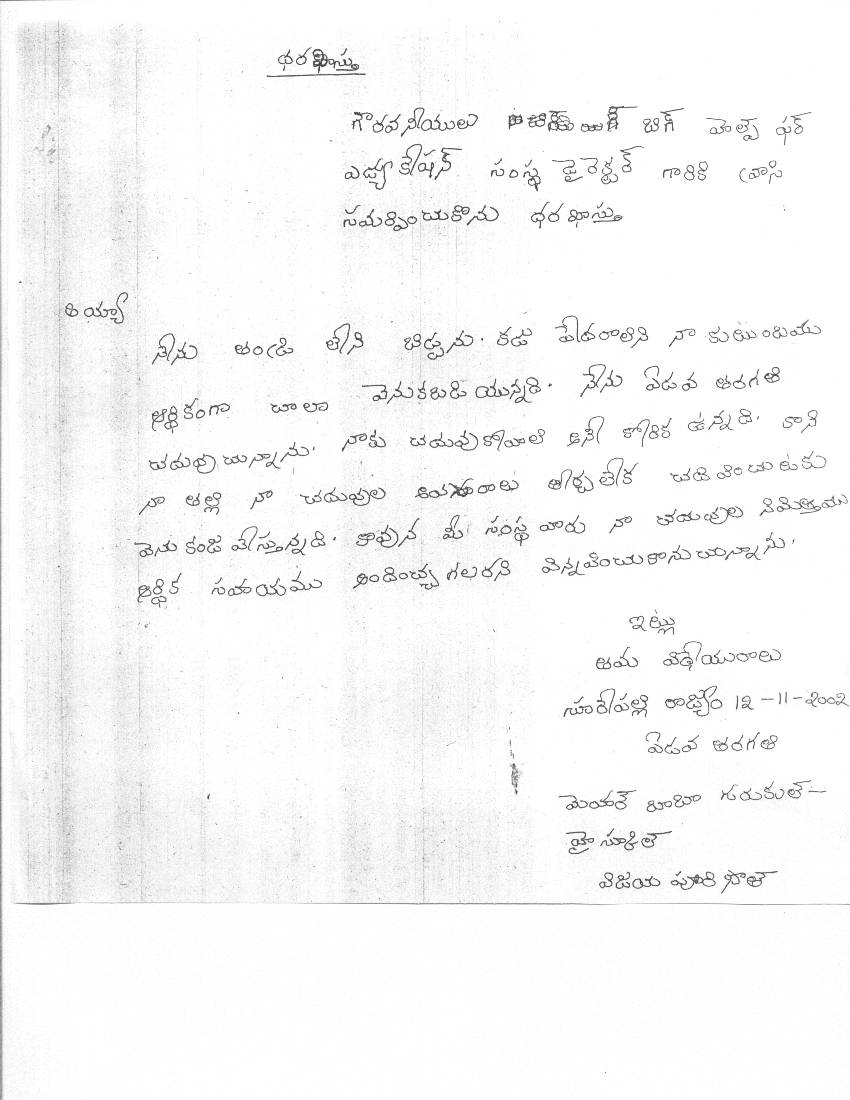 ధరఖాస్తు
గౌరవనీయులు బిగ్ హెల్ప్ ఫర్
ఎడ్యుకేషన్ సంస్థ డైరెక్టర్ గారికి వ్రాసి
సమర్పించుకొను ధరఖాస్తు
అయ్యా
నేను తండ్రి లేని బిడ్డను. కడు పేదరాలిని నా కుటుంబము
ఆర్థికంగా చాలా వెనుకబడి యున్నది. నేను ఏడవ తరగతి
చదువుచున్నాను. నాకు చదువుకోవాలి అనే కోరిక ఉన్నది. కాని
నా తల్లి నా చదువుల అవసరాలు తీర్చలేక చదివించుటకు
వెనుకంజ వేస్తున్నది. కావున మీ సంస్థ వారు నా చదువుల నిమిత్తము
ఆర్థిక సహాయము అందించ్చ గలరని విన్నవించుకొనుచున్నాను.
ఇట్లు
తమ విధేయురాలు
సూరేపల్లి రాజ్యం 12-11-2002
ఏడవ తరగతి
మెహర్ బాబా గురుకుల్-
హై స్కూల్
విజయ పూరి సౌత్